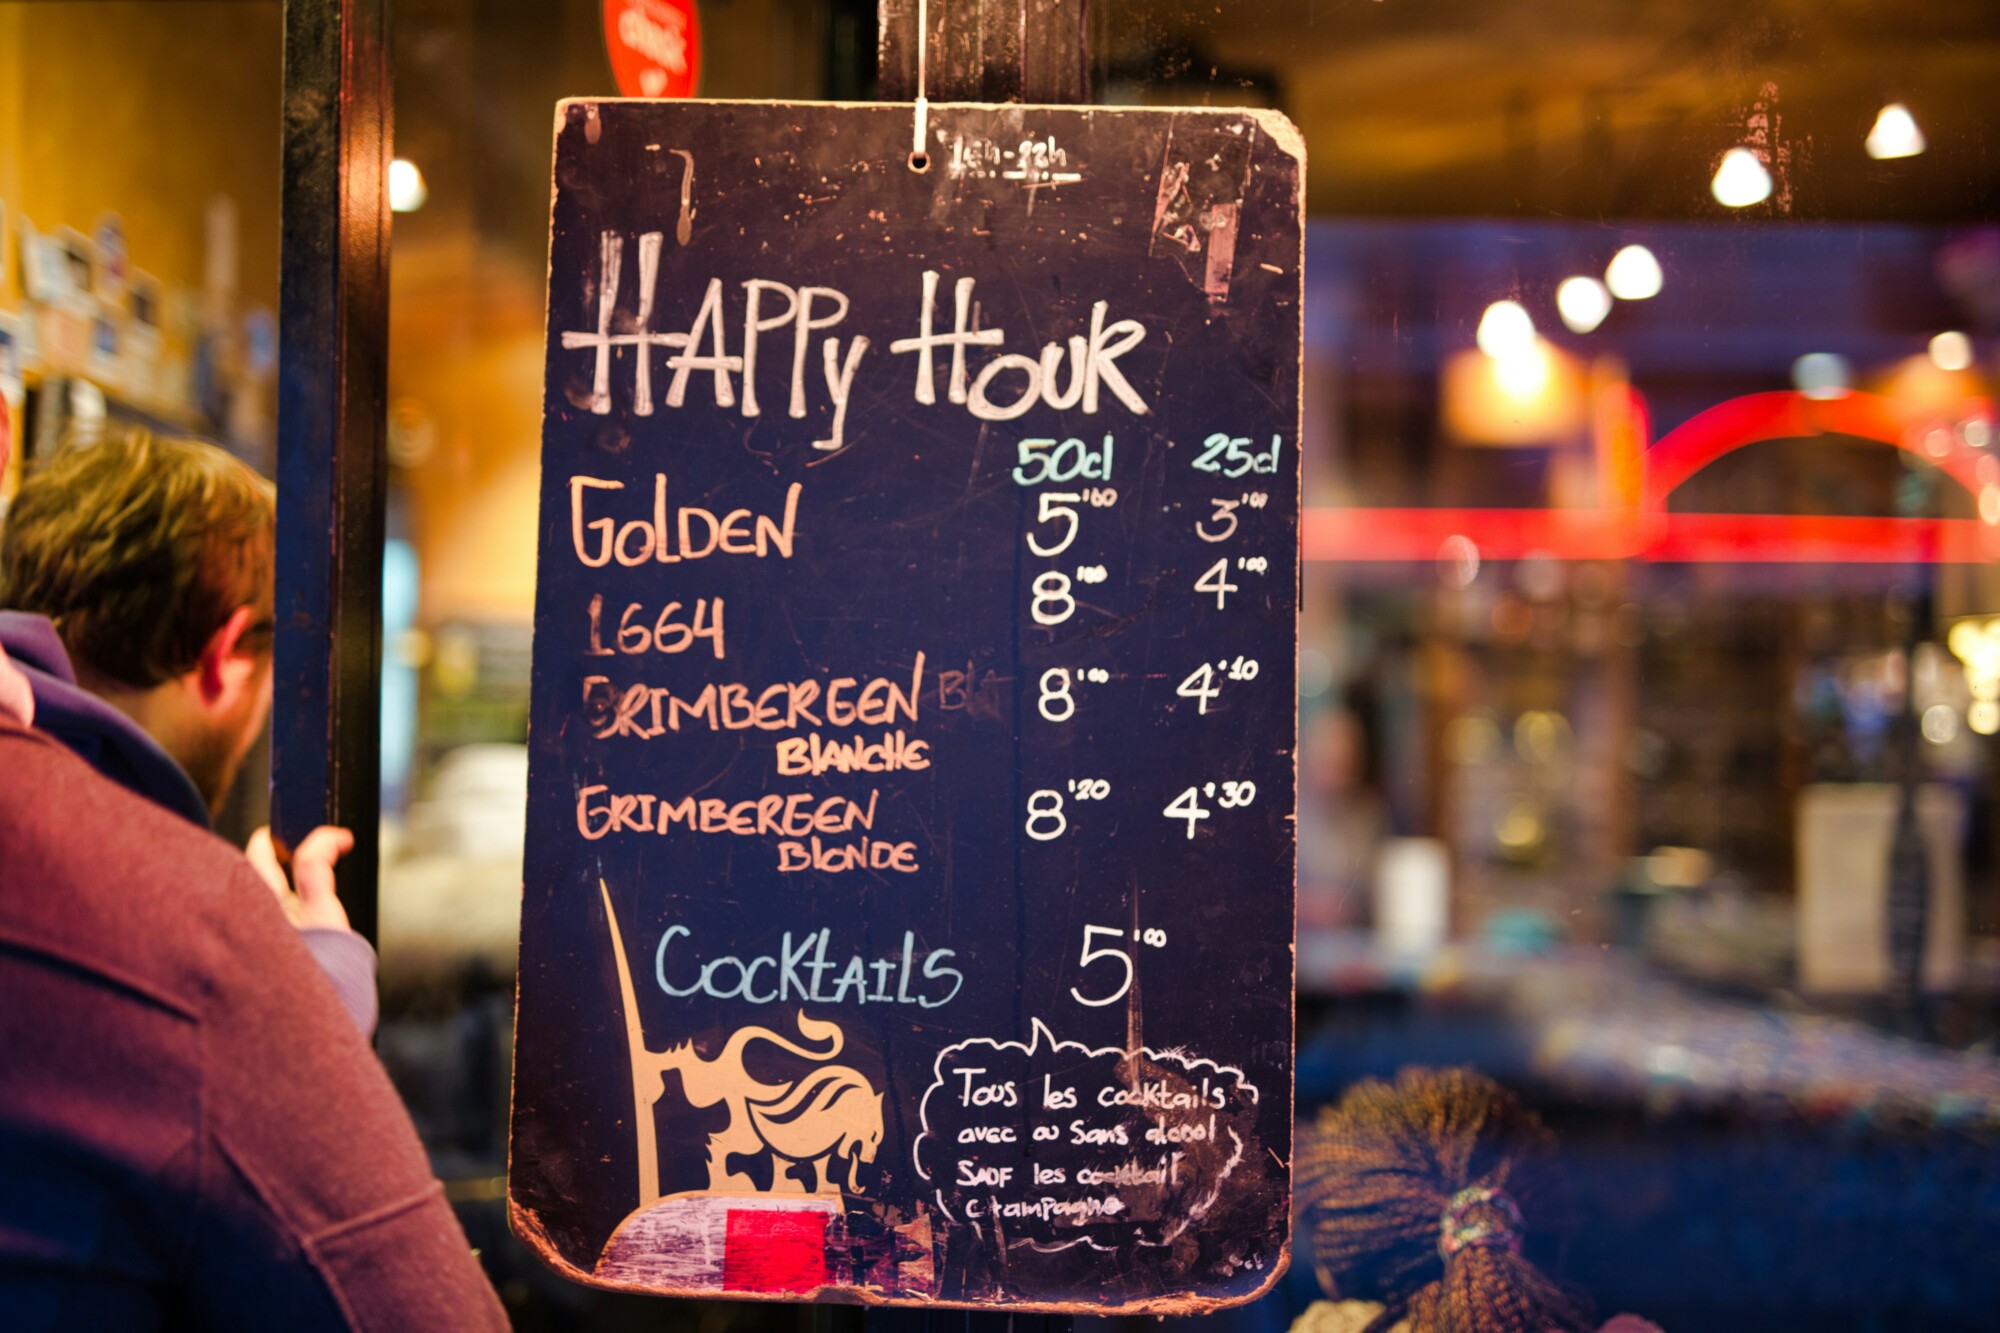 16h-22h
HAPPy HOUR
50cl 25cl
GOLDEN 5'00 3'00
1664 8'00 4'00
GRIMBERGEN 8'00 4'10
BLANCHE
GRIMBERGEN 8'20 4'30
BLONDE
COCKTAILS 5'00
Tous les cocktails
avec ou Sans alcool
SAUF les cocktail
Champagne